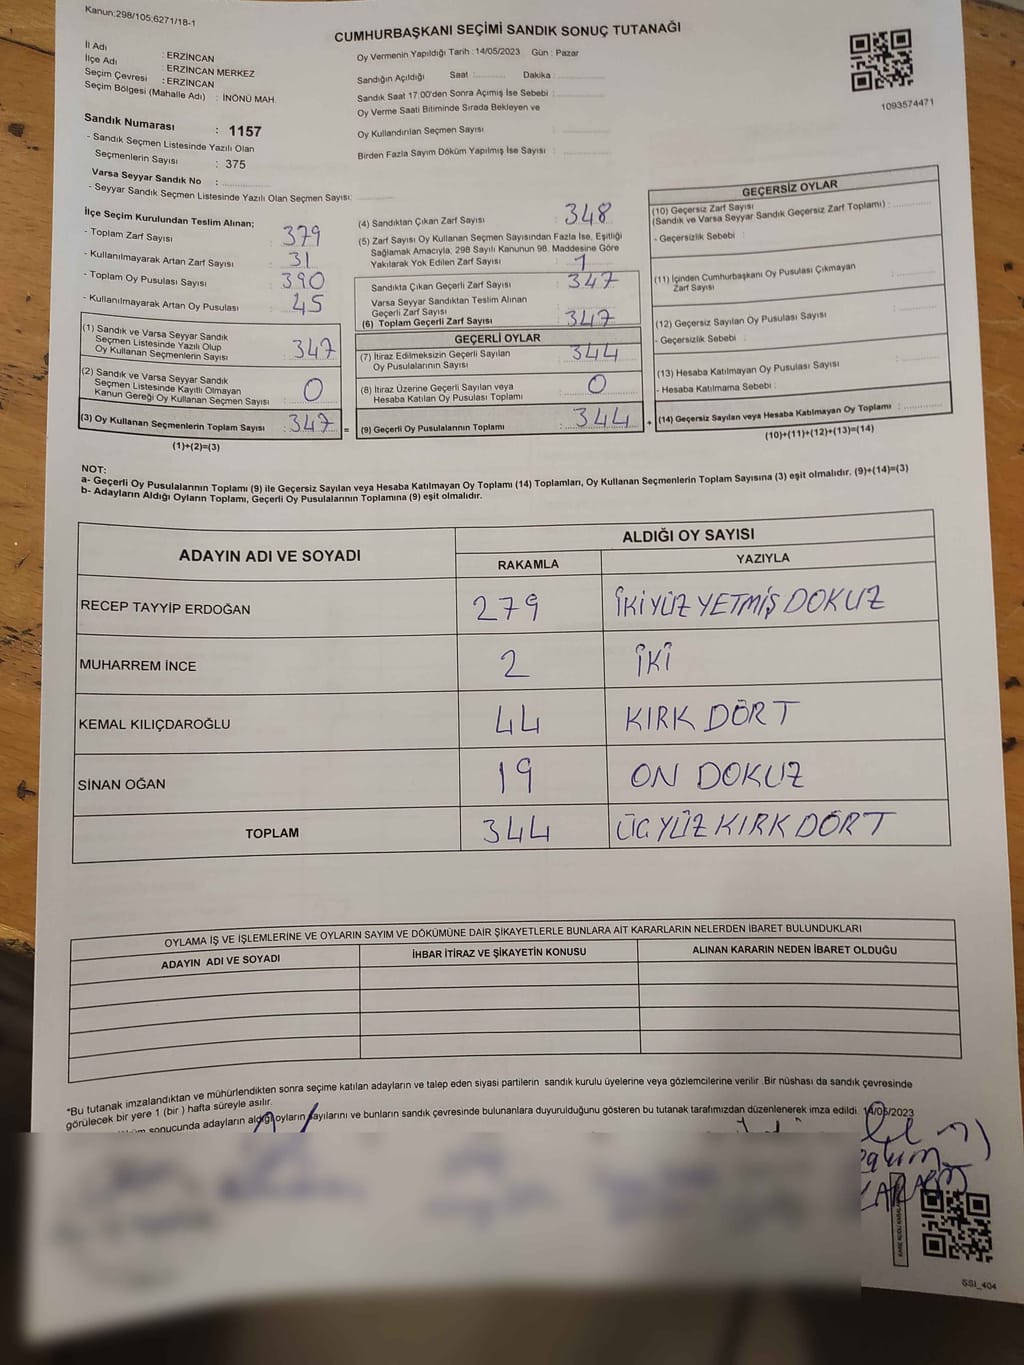 Kanun:298/105,6271/18-1
CUMHURBAŞKANI SEÇİMİ SANDIK SONUÇ TUTANAĞI
İl Adı : ERZİNCAN
İlçe Adı : ERZİNCAN MERKEZ
Seçim Çevresi : ERZİNCAN
Seçim Bölgesi (Mahalle Adı) : İNÖNÜ MAH.
Sandık Numarası : 1157
- Sandık Seçmen Listesinde Yazılı Olan
Seçmenlerin Sayısı : 375
Varsa Seyyar Sandık No :
- Seyyar Sandık Seçmen Listesinde Yazılı Olan Seçmen Sayısı:
Oy Vermenin Yapıldığı Tarih : 14/05/2023 Gün : Pazar
Sandığın Açıldığı Saat : Dakika :
Sandık Saat 17:00'den Sonra Açımış İse Sebebi :
Oy Verme Saati Bitiminde Sırada Bekleyen ve
Oy Kullandırılan Seçmen Sayısı :
Birden Fazla Sayım Döküm Yapılmış İse Sayısı :
1093574471
İlçe Seçim Kurulundan Teslim Alınan;
- Toplam Zarf Sayısı : 379
- Kullanılmayarak Artan Zarf Sayısı : 31
- Toplam Oy Pusulası Sayısı : 390
- Kullanılmayarak Artan Oy Pusulası : 45
(1) Sandık ve Varsa Seyyar Sandık
Seçmen Listesinde Yazılı Olup
Oy Kullanan Seçmenlerin Sayısı : 347
(2) Sandık ve Varsa Seyyar Sandık
Seçmen Listesinde Kayıtlı Olmayan
Kanun Gereği Oy Kullanan Seçmen Sayısı : 0
(3) Oy Kullanan Seçmenlerin Toplam Sayısı : 347 =
(1)+(2)=(3)
(4) Sandıktan Çıkan Zarf Sayısı : 348
(5) Zarf Sayısı Oy Kullanan Seçmen Sayısından Fazla İse, Eşitliği
Sağlamak Amacıyla, 298 Sayılı Kanunun 98. Maddesine Göre
Yakılarak Yok Edilen Zarf Sayısı : 1
Sandıkta Çıkan Geçerli Zarf Sayısı : 347
Varsa Seyyar Sandıktan Teslim Alınan
Geçerli Zarf Sayısı :
(6) Toplam Geçerli Zarf Sayısı : 347
GEÇERLİ OYLAR
(7) İtiraz Edilmeksizin Geçerli Sayılan
Oy Pusulalarının Sayısı : 344
(8) İtiraz Üzerine Geçerli Sayılan veya
Hesaba Katılan Oy Pusulası Toplamı : 0
(9) Geçerli Oy Pusulalarının Toplamı : 344 +
GEÇERSİZ OYLAR
(10) Geçersiz Zarf Sayısı
(Sandık ve Varsa Seyyar Sandık Geçersiz Zarf Toplamı) :
- Geçersizlik Sebebi :
(11) İçinden Cumhurbaşkanı Oy Pusulası Çıkmayan
Zarf Sayısı :
(12) Geçersiz Sayılan Oy Pusulası Sayısı :
- Geçersizlik Sebebi :
(13) Hesaba Katılmayan Oy Pusulası Sayısı :
- Hesaba Katılmama Sebebi :
(14) Geçersiz Sayılan veya Hesaba Katılmayan Oy Toplamı :
(10)+(11)+(12)+(13)=(14)
NOT:
a- Geçerli Oy Pusulalarının Toplamı (9) ile Geçersiz Sayılan veya Hesaba Katılmayan Oy Toplamı (14) Toplamları, Oy Kullanan Seçmenlerin Toplam Sayısına (3) eşit olmalıdır. (9)+(14)=(3)
b- Adayların Aldığı Oyların Toplamı, Geçerli Oy Pusulalarının Toplamına (9) eşit olmalıdır.
ADAYIN ADI VE SOYADI ALDIĞI OY SAYISI
RAKAMLA YAZIYLA
RECEP TAYYİP ERDOĞAN 279 İKİYÜZ YETMİŞ DOKUZ
MUHARREM İNCE 2 İKİ
KEMAL KILIÇDAROĞLU 44 KIRK DÖRT
SİNAN OĞAN 19 ON DOKUZ
TOPLAM 344 ÜÇ YÜZ KIRK DÖRT
OYLAMA İŞ VE İŞLEMLERİNE VE OYLARIN SAYIM VE DÖKÜMÜNE DAİR ŞİKAYETLERLE BUNLARA AİT KARARLARIN NELERDEN İBARET BULUNDUKLARI
ADAYIN ADI VE SOYADI İHBAR İTİRAZ VE ŞİKAYETİN KONUSU ALINAN KARARIN NEDEN İBARET OLDUĞU
*Bu tutanak imzalandıktan ve mühürlendikten sonra seçime katılan adayların ve talep eden siyasi partilerin sandık kurulu üyelerine veya gözlemcilerine verilir .Bir nüshası da sandık çevresinde
görülecek bir yere 1 (bir ) hafta süreyle asılır.
sonucunda adayların aldığı oyların sayılarını ve bunların sandık çevresinde bulunanlara duyurulduğunu gösteren bu tutanak tarafımızdan düzenlenerek imza edildi. 14/05/2023
SSI_404